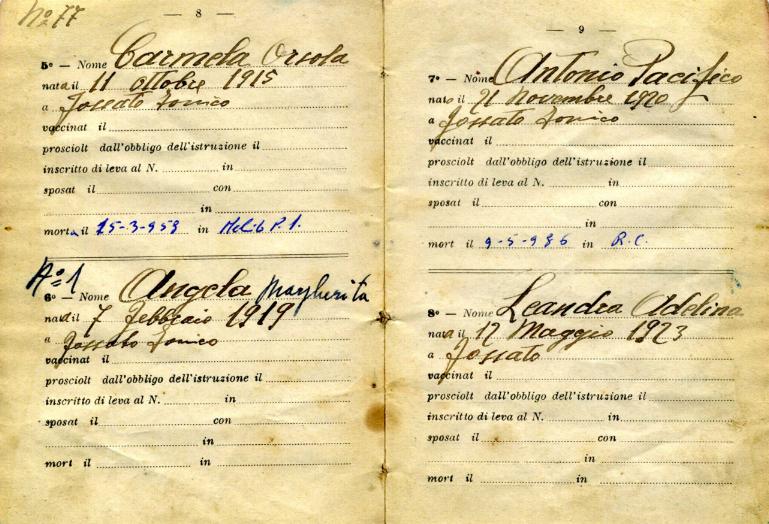 No 77
— 8 —
5º — Nome Carmela Orsola
nata il 11 ottobre 1915
a Fossato Jonico
vaccinat il
prosciolt dall'obbligo dell'istruzione il
inscritto di leva al N. in
sposat il con
in
morta il 15-3-959 in Melito P.S.
Nº 1
6º — Nome Angela Margherita
nata il 7 Febbraio 1919
a Fossato Jonico
vaccinat il
prosciolt dall'obbligo dell'istruzione il
inscritto di leva al N. in
sposat il con
in
mort il in
— 9 —
7º — Nome Antonio Pacifico
nato il 21 Novembre 1920
a Fossato Jonico
vaccinat il
prosciolt dall'obbligo dell'istruzione il
inscritto di leva al N. in
sposat il con
in
mort il 9-5-986 in R.C.
8º — Nome Leandra Adelina
nata il 12 Maggio 1923
a Fossato
vaccinat il
prosciolt dall'obbligo dell'istruzione il
inscritto di leva al N. in
sposat il con
in
mort il in